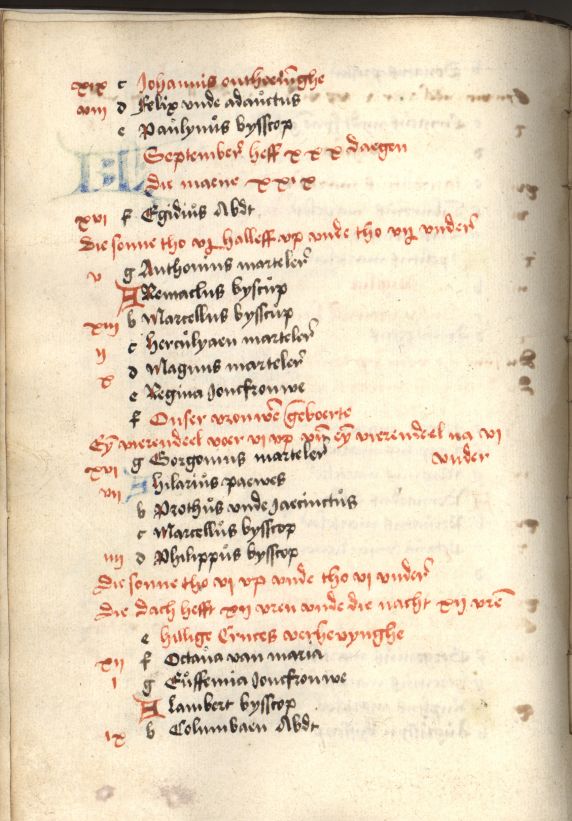 xix c Johannis onthovinghe
viii d Felix unde adauctus
e Paulynus bysscop
KL September heff xxx daegen
Die maene xxix
xvi f Egidius Abdt
Die sonne tho vj halleff up unde tho vij under
v g Anthonius marteler
A Remaclus byscup
xiii b Marcellus bysscup
ii c Herculyaen marteler
x d Magnus marteler
e Regina Joncfrouwe
f Onser vrouwe geboerte
Ey vierendeel voer vi up ey vierendeel na vi
under
xvi g Gorgonius marteler
vii A hilarius paewes
b Prothus unde Jaecinctus
c Marcellus bysscop
iiii d Philippus bysscop
Die sonne tho vi up unde tho vi under
Die dach hefft xii uren unde die nacht xii uren
e hillige Cruces verhevynghe
xii f Octava van maria
i g Euffemia Joncfrouwe
A Lambert bysscop
ix b Columbaen Abdt